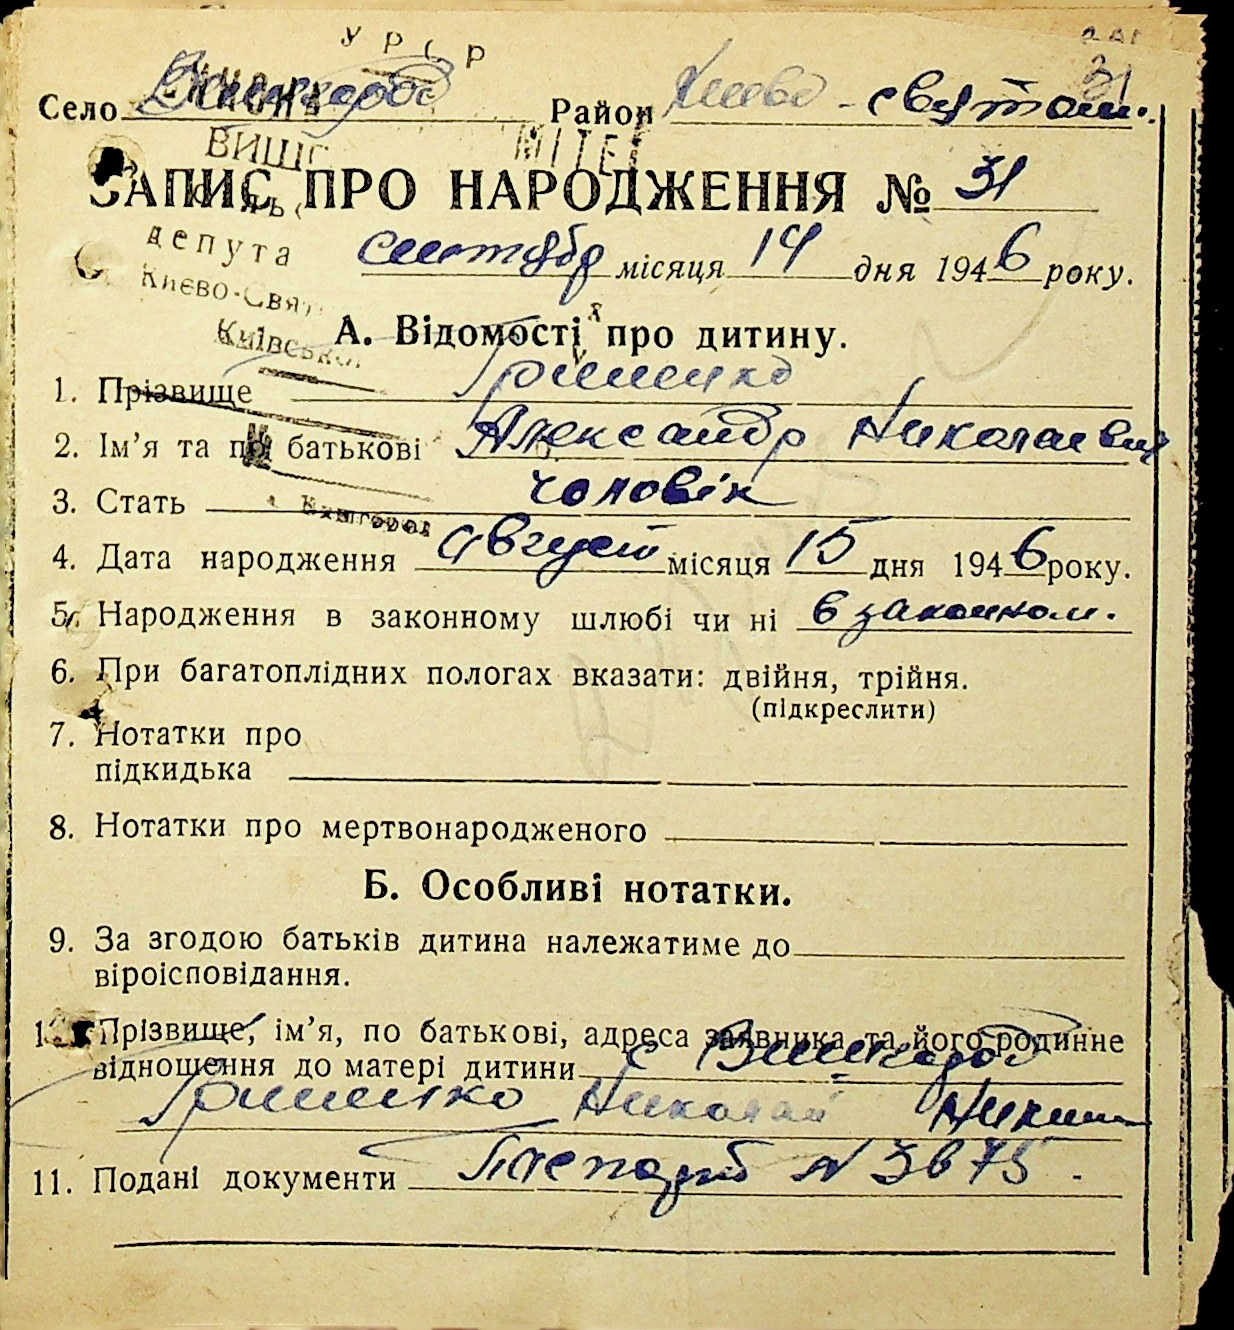 УРСР
31
Село Вишгород Район Киево-святош.
ВИШГ МІТЕТ
ЗАПИС ПРО НАРОДЖЕННЯ № 31
депута
сентябр місяця 14 дня 1946 року.
Києво-Свят
А. Відомості про дитину.
Київської
1. Прізвище Гриценко
2. Ім'я та по батькові Александр Николаевич
3. Стать чоловік
с. Вишгород
4. Дата народження август місяця 15 дня 1946 року.
5. Народження в законному шлюбі чи ні в законном.
6. При багатоплідних пологах вказати: двійня, трійня.
(підкреслити)
7. Нотатки про
підкидька
8. Нотатки про мертвонародженого
Б. Особливі нотатки.
9. За згодою батьків дитина належатиме до
віроісповідання.
1 Прізвище, ім'я, по батькові, адреса заявника та його родинне
відношення до матері дитини с Вишгород
Гриценко Николай
11. Подані документи Паспорт N 3875